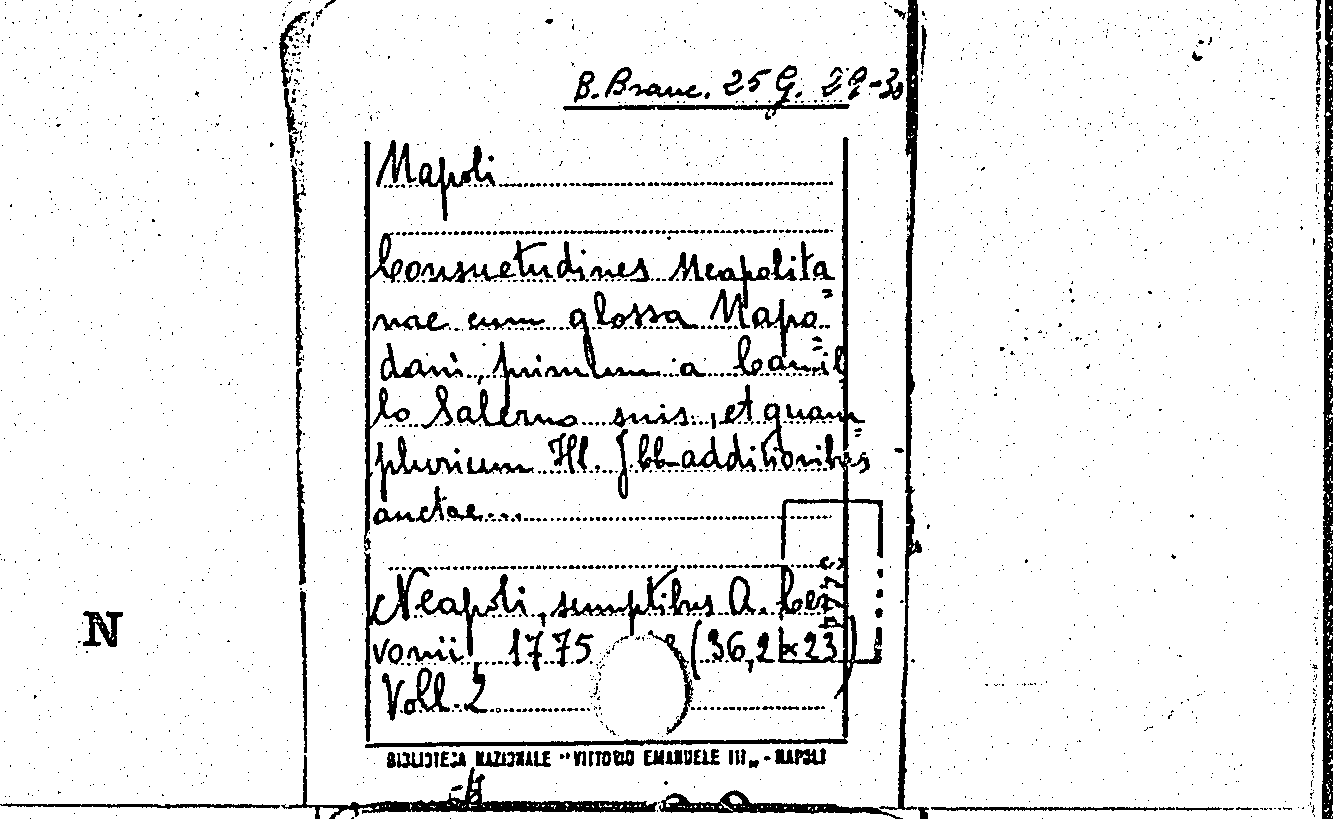 B. Branc. 25 G. 29-30
Napoli
Consuetudines Neapolita=
nae cum glossa Napo=
dani, primum a Camil=
lo Salerno suis, et quam
pluricum Ill. J bb additionibus
auctae...
Neapoli, sumptibus A. Cer=
vonii, 1775 (36,2×23)
Voll. 2
BIBLIOTECA NAZIONALE "VITTORIO EMANUELE III„ - NAPOLI
N